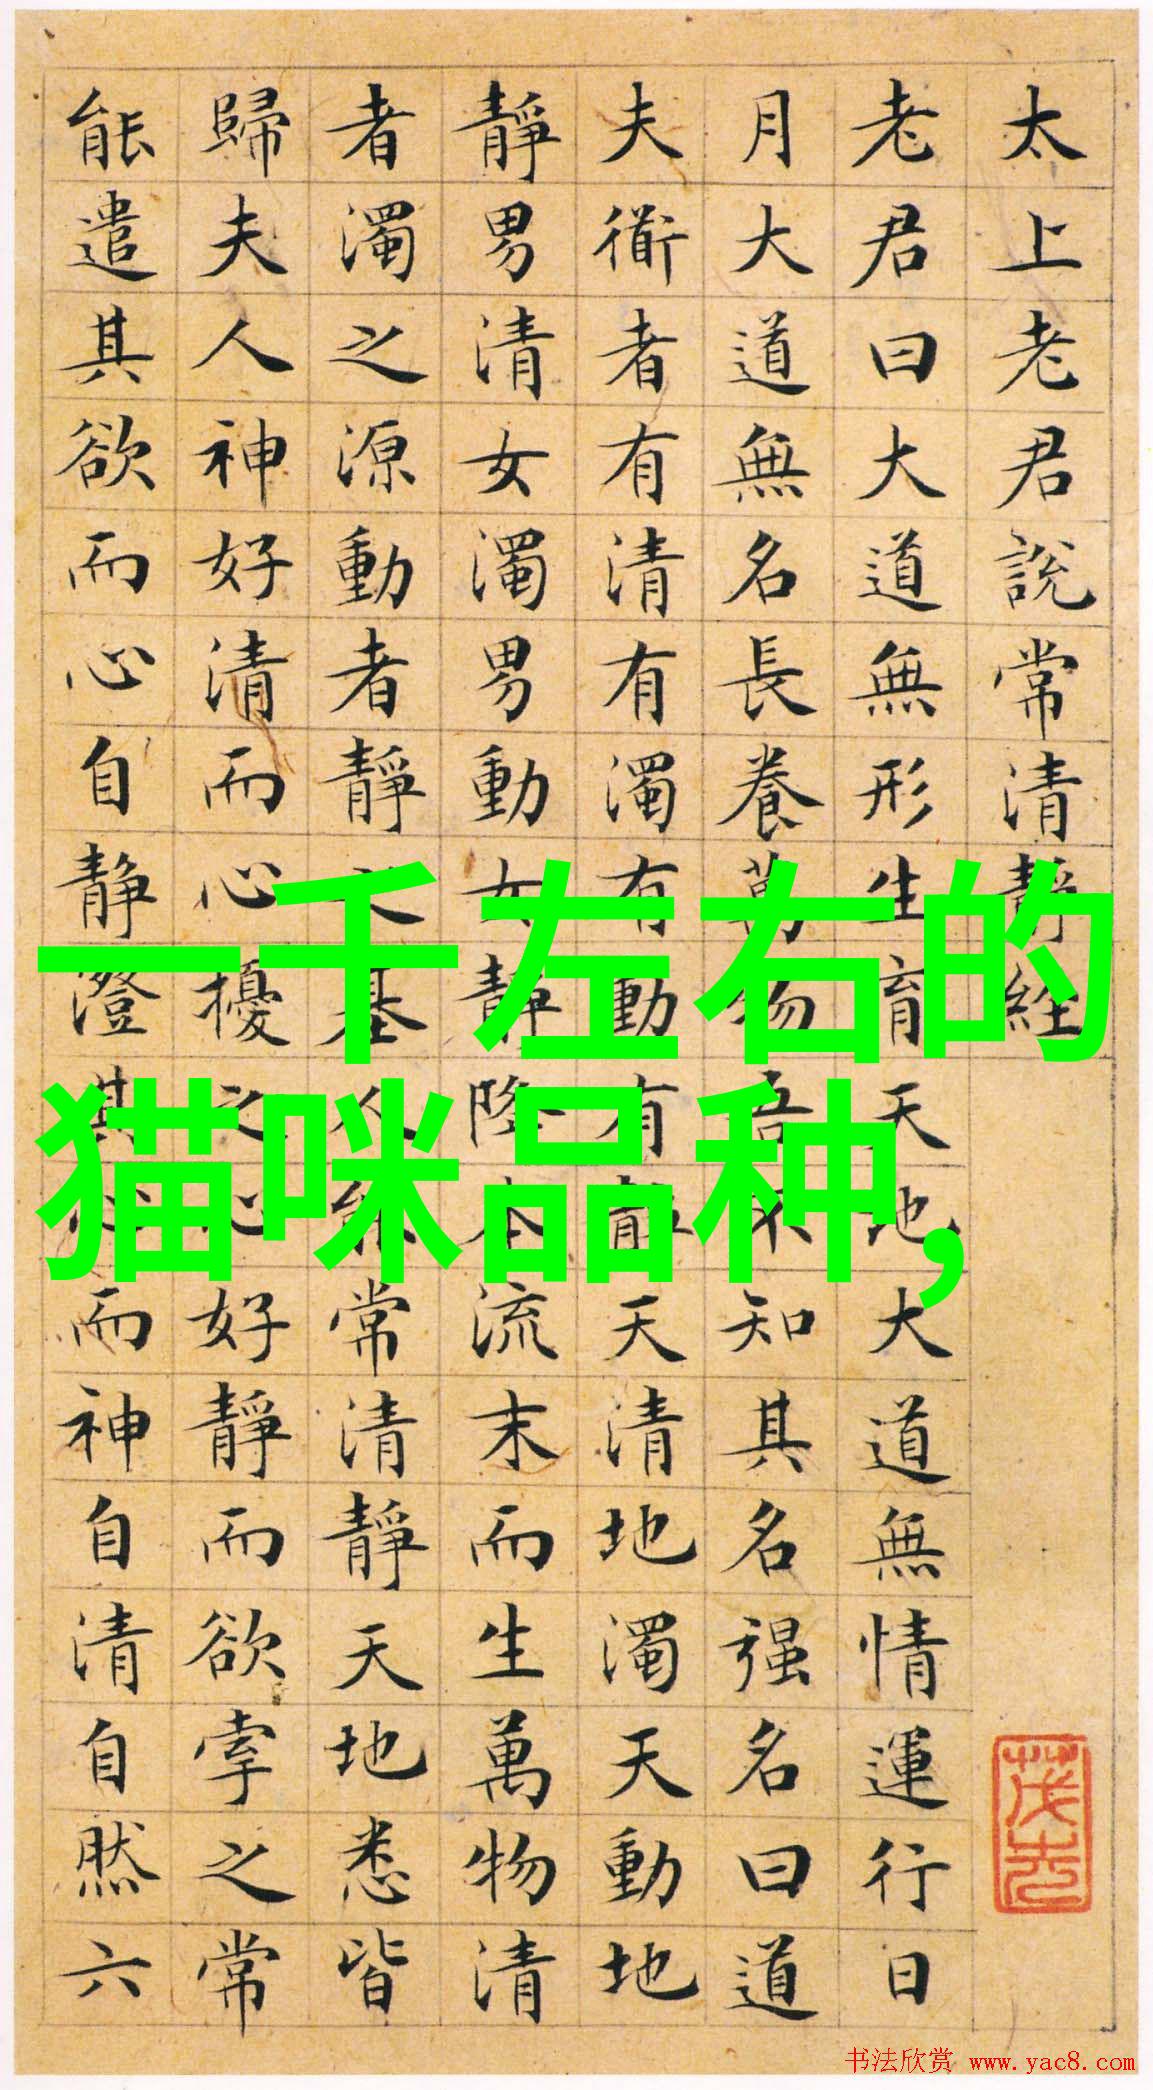 太上老君說常清靜經
老君曰大道無形生育天地大道無情運行日
月大道無名長養萬物吾不知其名强名曰道
夫衜者有清有濁有動有靜天清地濁天動地
靜男清女濁男動女靜降本流末而生萬物清
者濁之源動者靜之基人能常清靜天地悉皆
歸夫人神好清而心擾之心好靜而欲牽之常
能遣其欲而心自靜澄其心而神自清自然六
一千左右的
猫咪品种,
书法欣赏 www.yac8.com